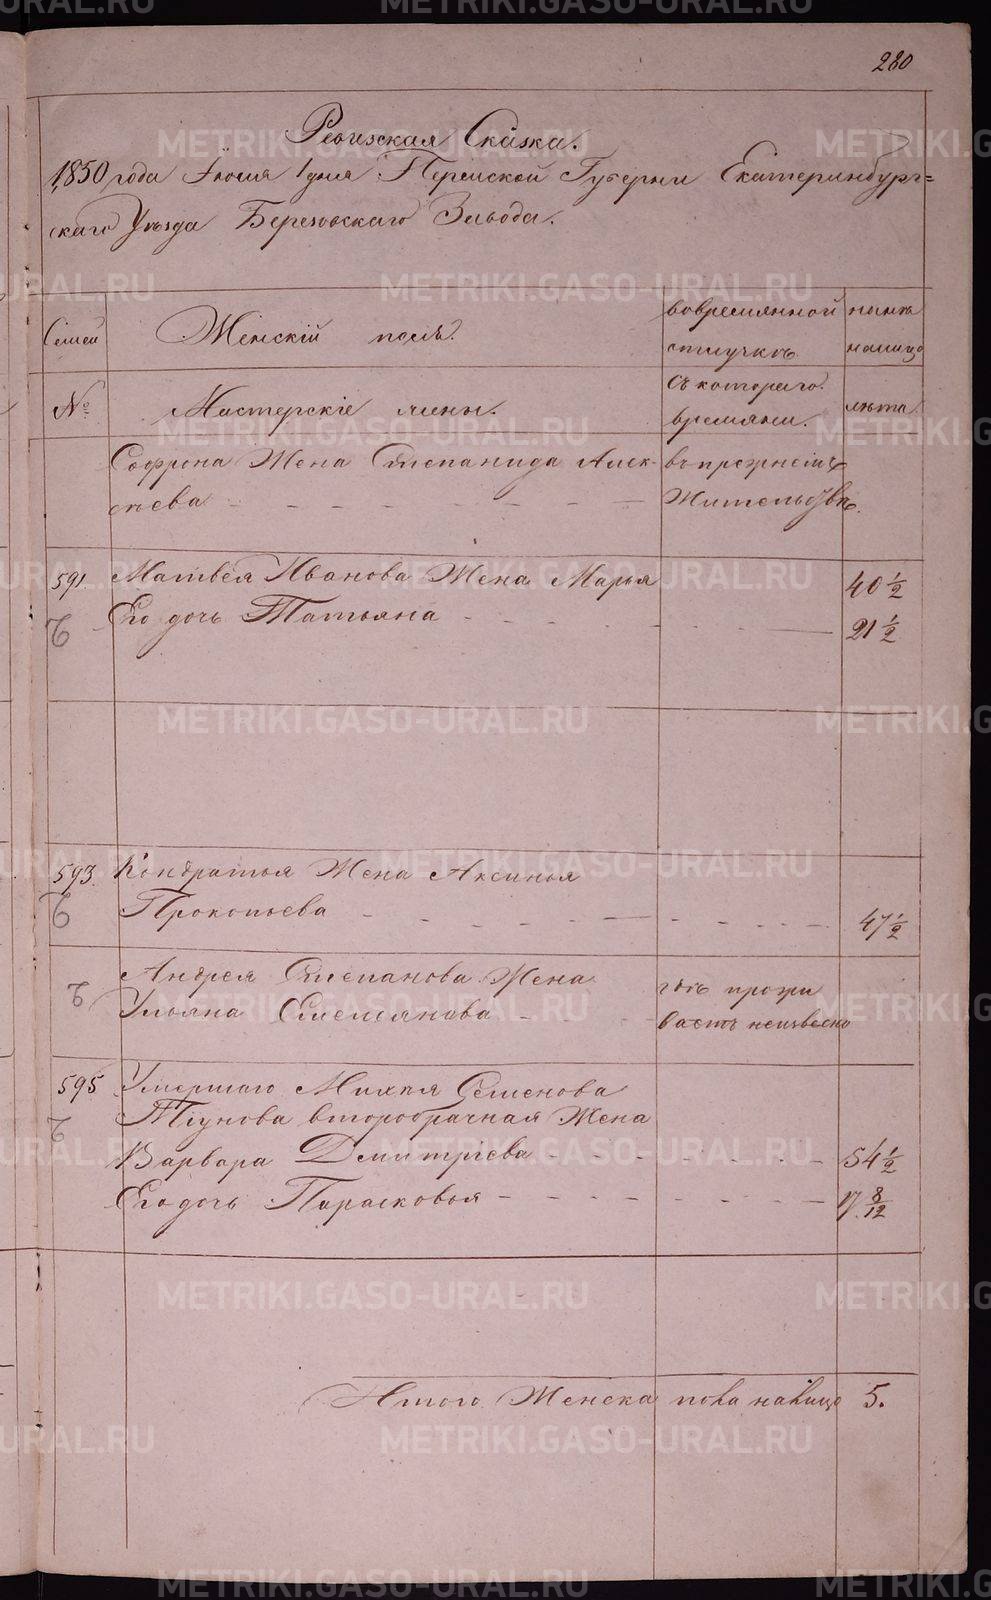 280
Ревизская Сказка.
1850 года Июля 1 дня Пермской Губерни Екатеринбург=
скаго Уѣзда Березовскаго Завода.
Семеи
Женскій полъ.
вовремянной
отлучкѣ
нынѣ
налицо
№
Мастерскіе жены.
съ котораго
времяни.
лѣта
Софрона Жена Степанида Алек-
сѣева
въ прежнемъ
Жительствѣ.
591. Матвея Иванова Жена Марья 40 1/2
Его дочь Татьяна 21 1/2
593. Кондратья Жена Аксинья
Прокопьева 47 1/2
Андрея Степанова Жена
Ульяна Емельянова
гдѣ прожи
ваетъ неизвесно
595 Умершаго Михея Семенова
Тіунова второбрачная Жена
Варвара Дмитріева 54 1/2
Его дочь Парасковья 17 8/12
Итого Женска пола налицо 5.
METRIKI.GASO-URAL.RU